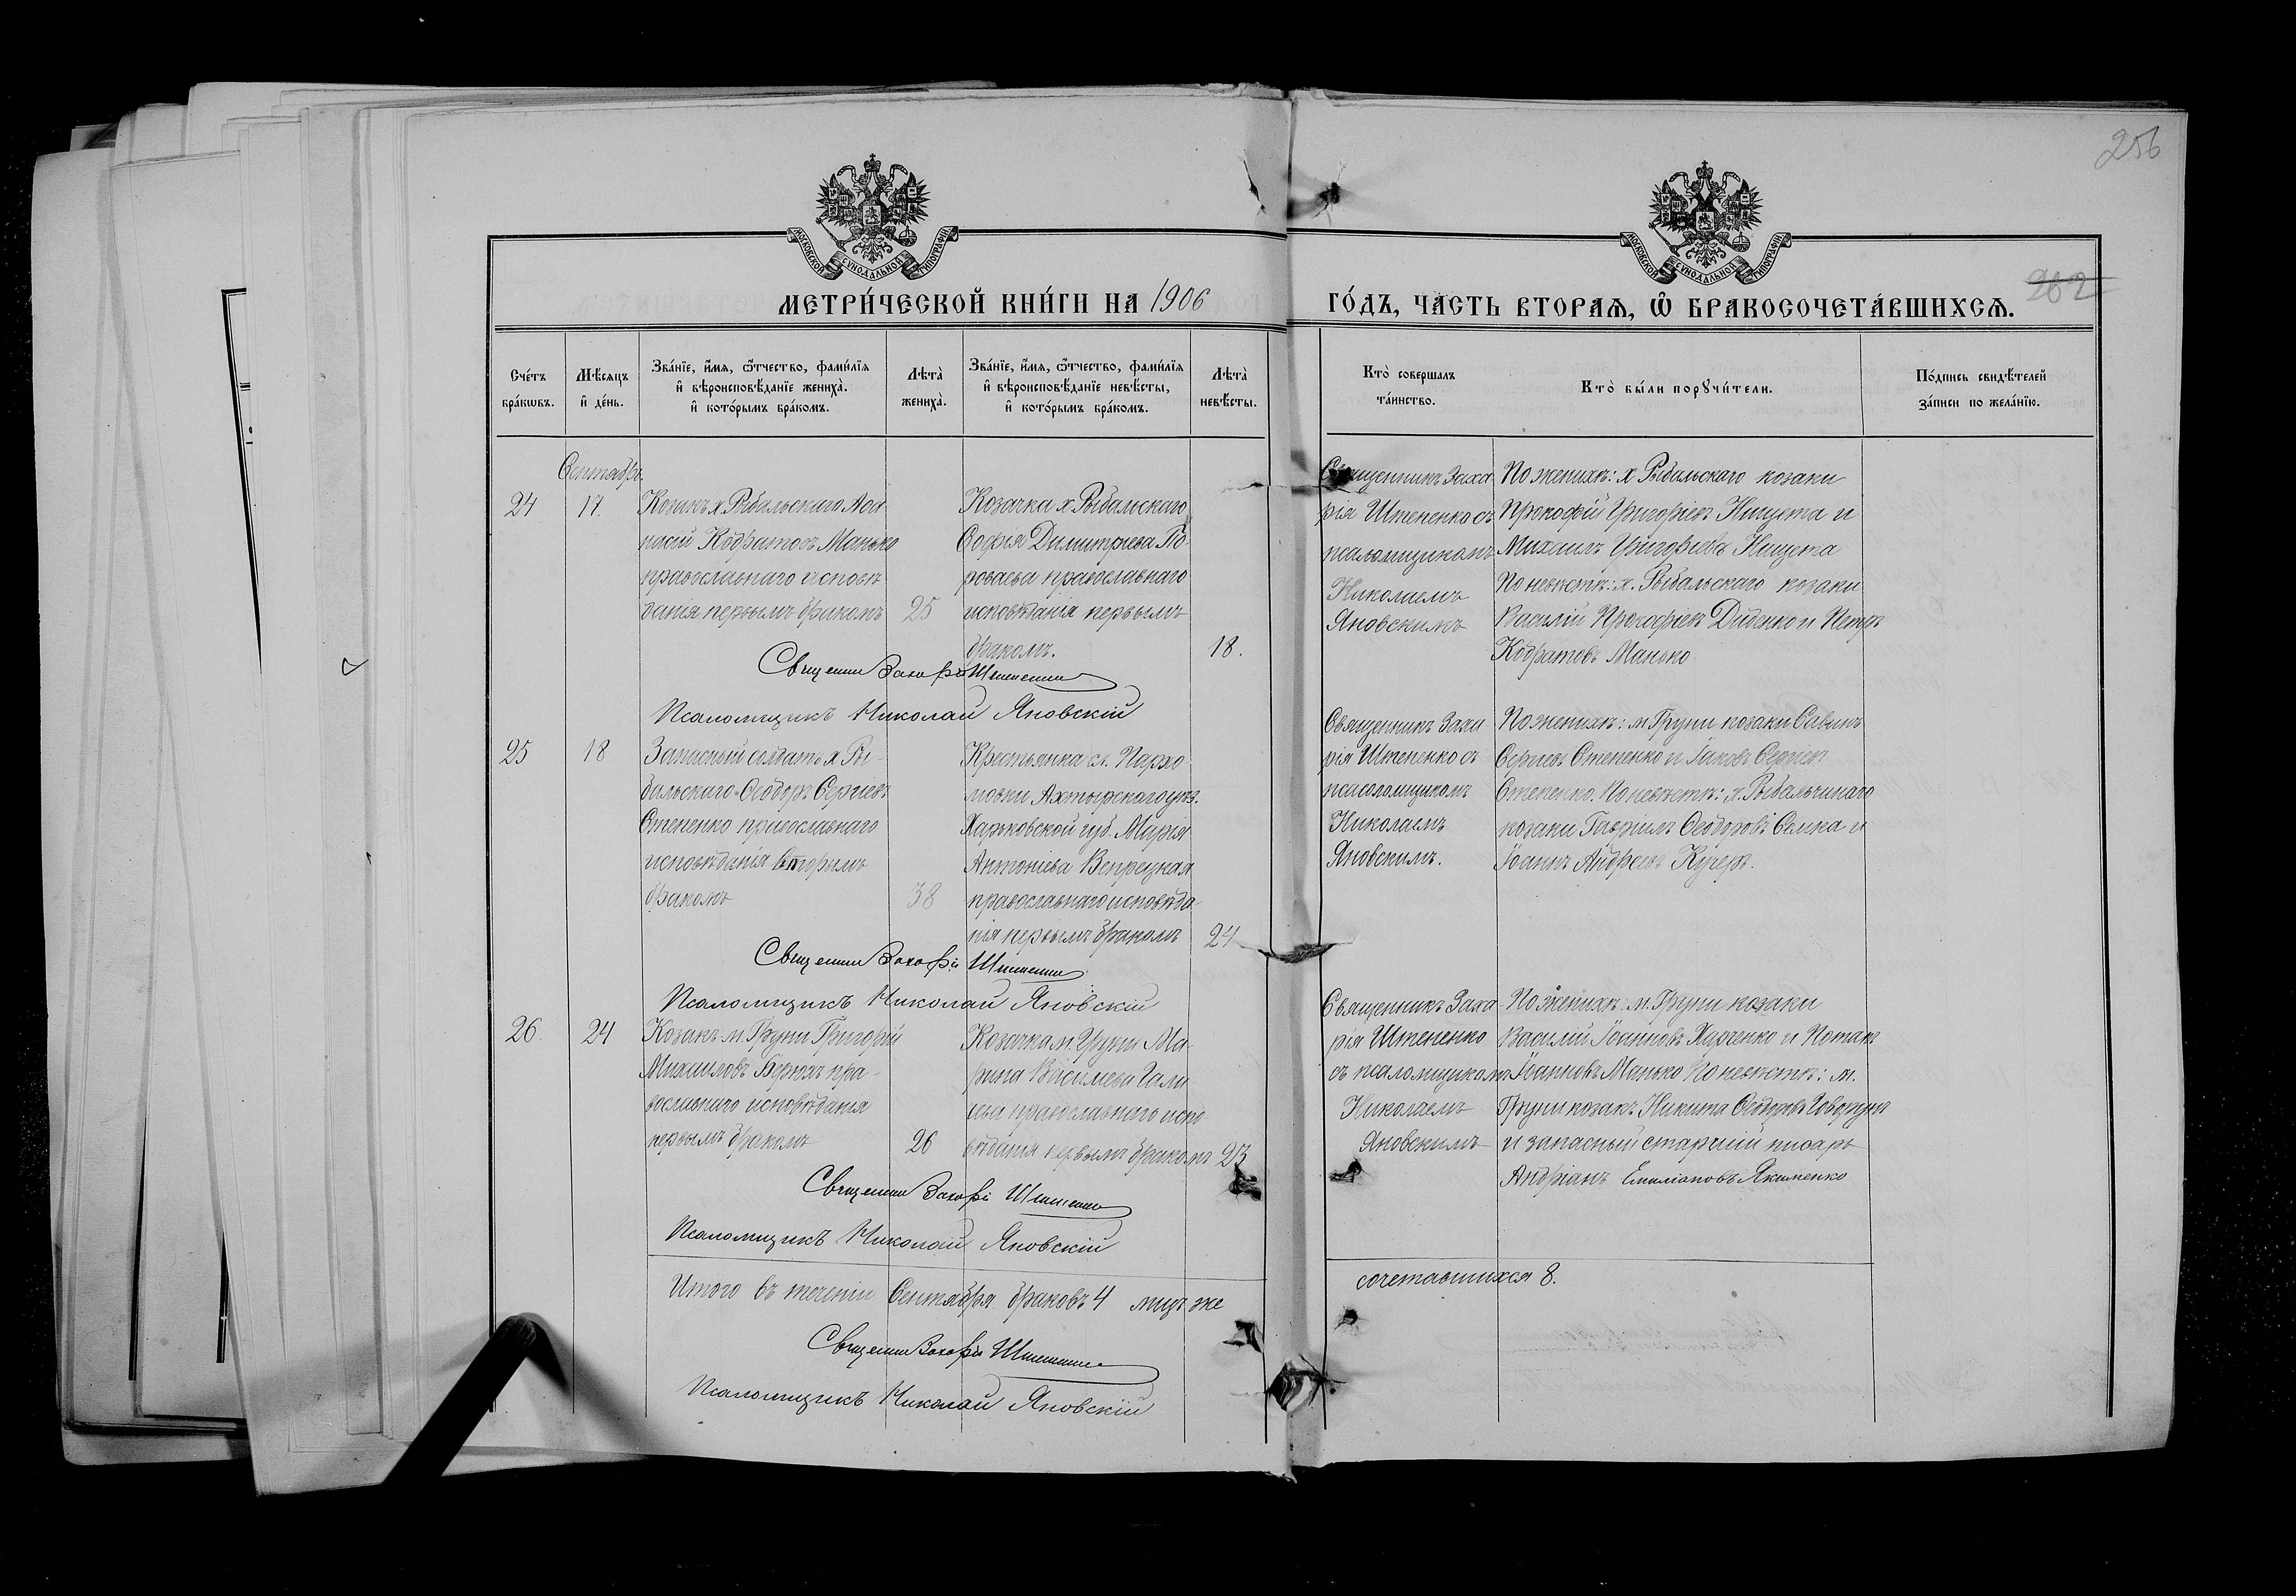 256
МОСКОВСКОЙ СѴНОДАЛЬНОЙ ТИПОГРАФІИ
МОСКОВСКОЙ СѴНОДАЛЬНОЙ ТИПОГРАФІИ
262
МЕТРИ́ЧЕСКОЙ КНИ́ГИ НА 1906
ГО́ДЪ, ЧАСТЬ ВТОРАѦ, Ѡ҆ БРАКОСОЧЕТА́ВШИХСѦ.
Сче́тъ бра́кѡвъ.
Мѣ́сяцъ и҆ де́нь.
Зва́нїе, и҆́мя, ѻ҆́тчество, фами́лїя
и҆ вѣроисповѣ́данїе жениха̀.
и҆ кото́рымъ бра́комъ.
Лѣта̀ жениха̀.
Зва́нїе, и҆́мя, ѻ҆́тчество, фами́лїя
и҆ вѣроисповѣ́данїе невѣ́сты,
и҆ кото́рымъ бра́комъ.
Лѣта̀ невѣ́сты.
Кто̀ соверша́лъ та́инство.
Кто̀ бы́ли порꙋчи́тели.
По́дпись свидѣ́телей за́писи по жела́нїю.
Сентябрь.
24
17.
Козакъ х. Рыбальскаго Аѳа
насій Кодратовъ Манько
православнаго исповѣ
данія первымъ бракомъ
25
Козачка х. Рыбальскаго
Софія Димитріева
православнаго
исповѣданія первымъ
бракомъ.
18.
Священникъ Заха
рія Штепенко съ
псаломщикомъ
Николаемъ
Яновскимъ
По женихѣ: х. Рыбальскаго козаки
Прокофій Григоріевъ Нищета и
Михаилъ Григоріевъ Нищета
По невѣстѣ: х. Рыбальскаго козаки
Василій Прокофіевъ Диденко и Петръ
Кодратовъ Манько
Священникъ Захарій Штепенко
Псаломщикъ Николай Яновскій
25
18
Запасный солдатъ х. Ры-
бальскаго Ѳеодоръ Сергіевъ
Степенко православнаго
исповѣданія вторымъ
бракомъ
38
Крестьянка сл. Пархо
мовки Ахтырскаго уѣз.
Харьковской губ. Марія
Антоніева
православнаго исповѣда
нія первымъ бракомъ
24
Священникъ Заха
рія Штепенко съ
псаломщикомъ
Николаемъ
Яновскимъ.
По женихѣ: м. Груни козаки Савинъ
Сергіевъ Степенко и Іаковъ Сергіевъ
Степенко. По невѣстѣ: х.
козаки Гавріилъ Ѳеодоровъ Семка и
Іоаннъ Андреевъ Кучеръ.
Священникъ Захарій Штепенко
Псаломщикъ Николай Яновскій
26.
24
Козакъ м. Груни Григорій
Михаиловъ пра-
вославнаго исповѣданія
первымъ бракомъ
26
Козачка м. Груни Ма-
рина Васильева
православнаго испо
вѣданія первымъ бракомъ
23
Священникъ Заха
рія Штепенко
съ псаломщикомъ
Николаемъ
Яновскимъ
По женихѣ: м. Груни козаки
Василій Іоанновъ Харченко и Потапъ
Іоанновъ Манько По невѣстѣ: м.
Груни козакъ Никита Ѳеодоровъ Говорунъ
и запасный старшій писарь
Андріанъ Емиліановъ Якименко
Священникъ Захарій Штепенко
Псаломщикъ Николай Яновскій
Итого въ теченіи Сентября браковъ 4 лицъ же
сочетавшихся 8.
Священникъ Захарій Штепенко
Псаломщикъ Николай Яновскій